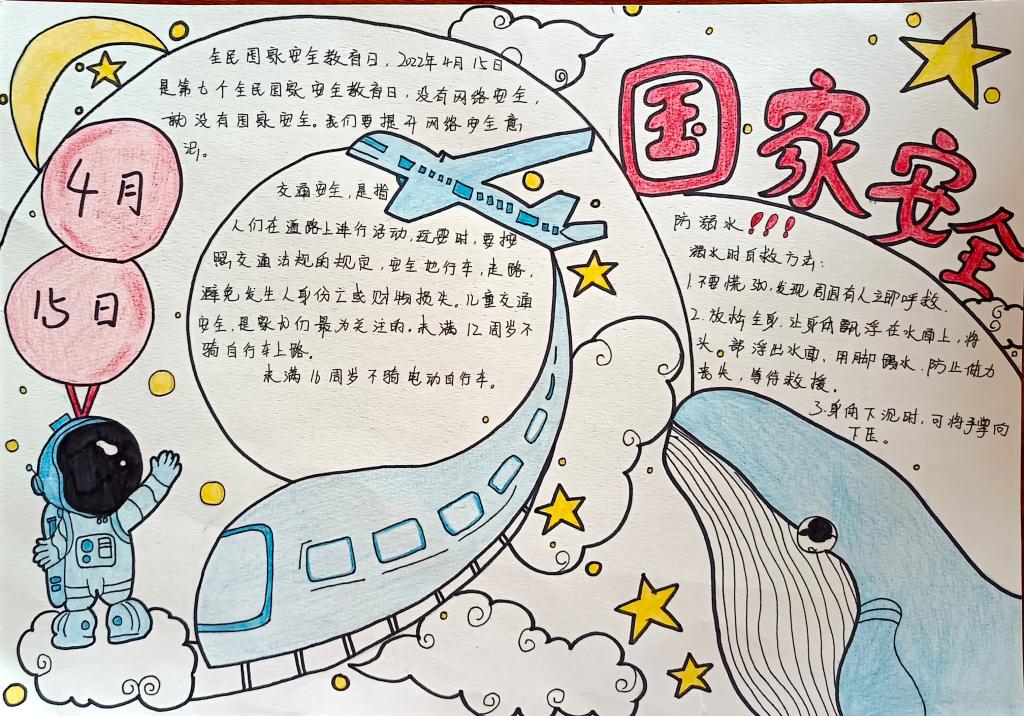 国家安全
全民国家安全教育日，2022年4月15日
是第七个全民国家安全教育日，没有网络安全，
就没有国家安全。我们要提升网络安全意
识。
4月
15日
交通安全，是指
人们在道路上进行活动，玩耍时，要按
照交通法规的规定，安全地行车，走路，
避免发生人身伤亡或财物损失。儿童交通
安全，是家长们最为关注的。未满12周岁不
骑自行车上路。
未满16周岁不骑电动自行车。
防溺水！！！
溺水时自救方法：
1.不要慌张，发现周围有人立即呼救。
2.放松全身，让身体飘浮在水面上，将
头部浮出水面，用脚踢水，防止体力
丧失，等待救援。
3.身体下沉时，可将手掌向
下压。